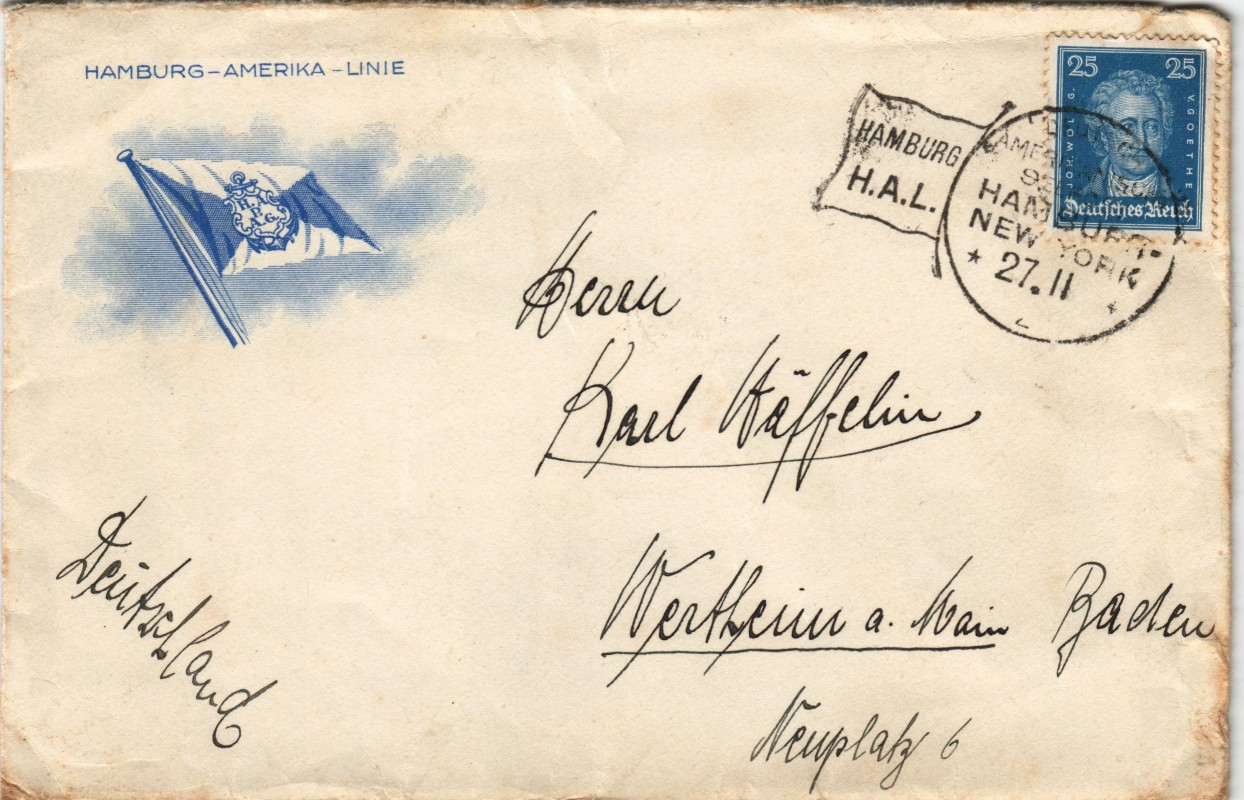 HAMBURG–AMERIKA–LINIE
H.A.
P.
A.G.
25 25
JOH. WOLFG. V. GOETHE
Deutsches Reich
HAMBURG
H.A.L.
HAMBURG-
NEW YORK
* 27.11 *
Herrn
Karl Häffelin
Wertheim a. Main Baden
Neuplatz 6
Deutschland